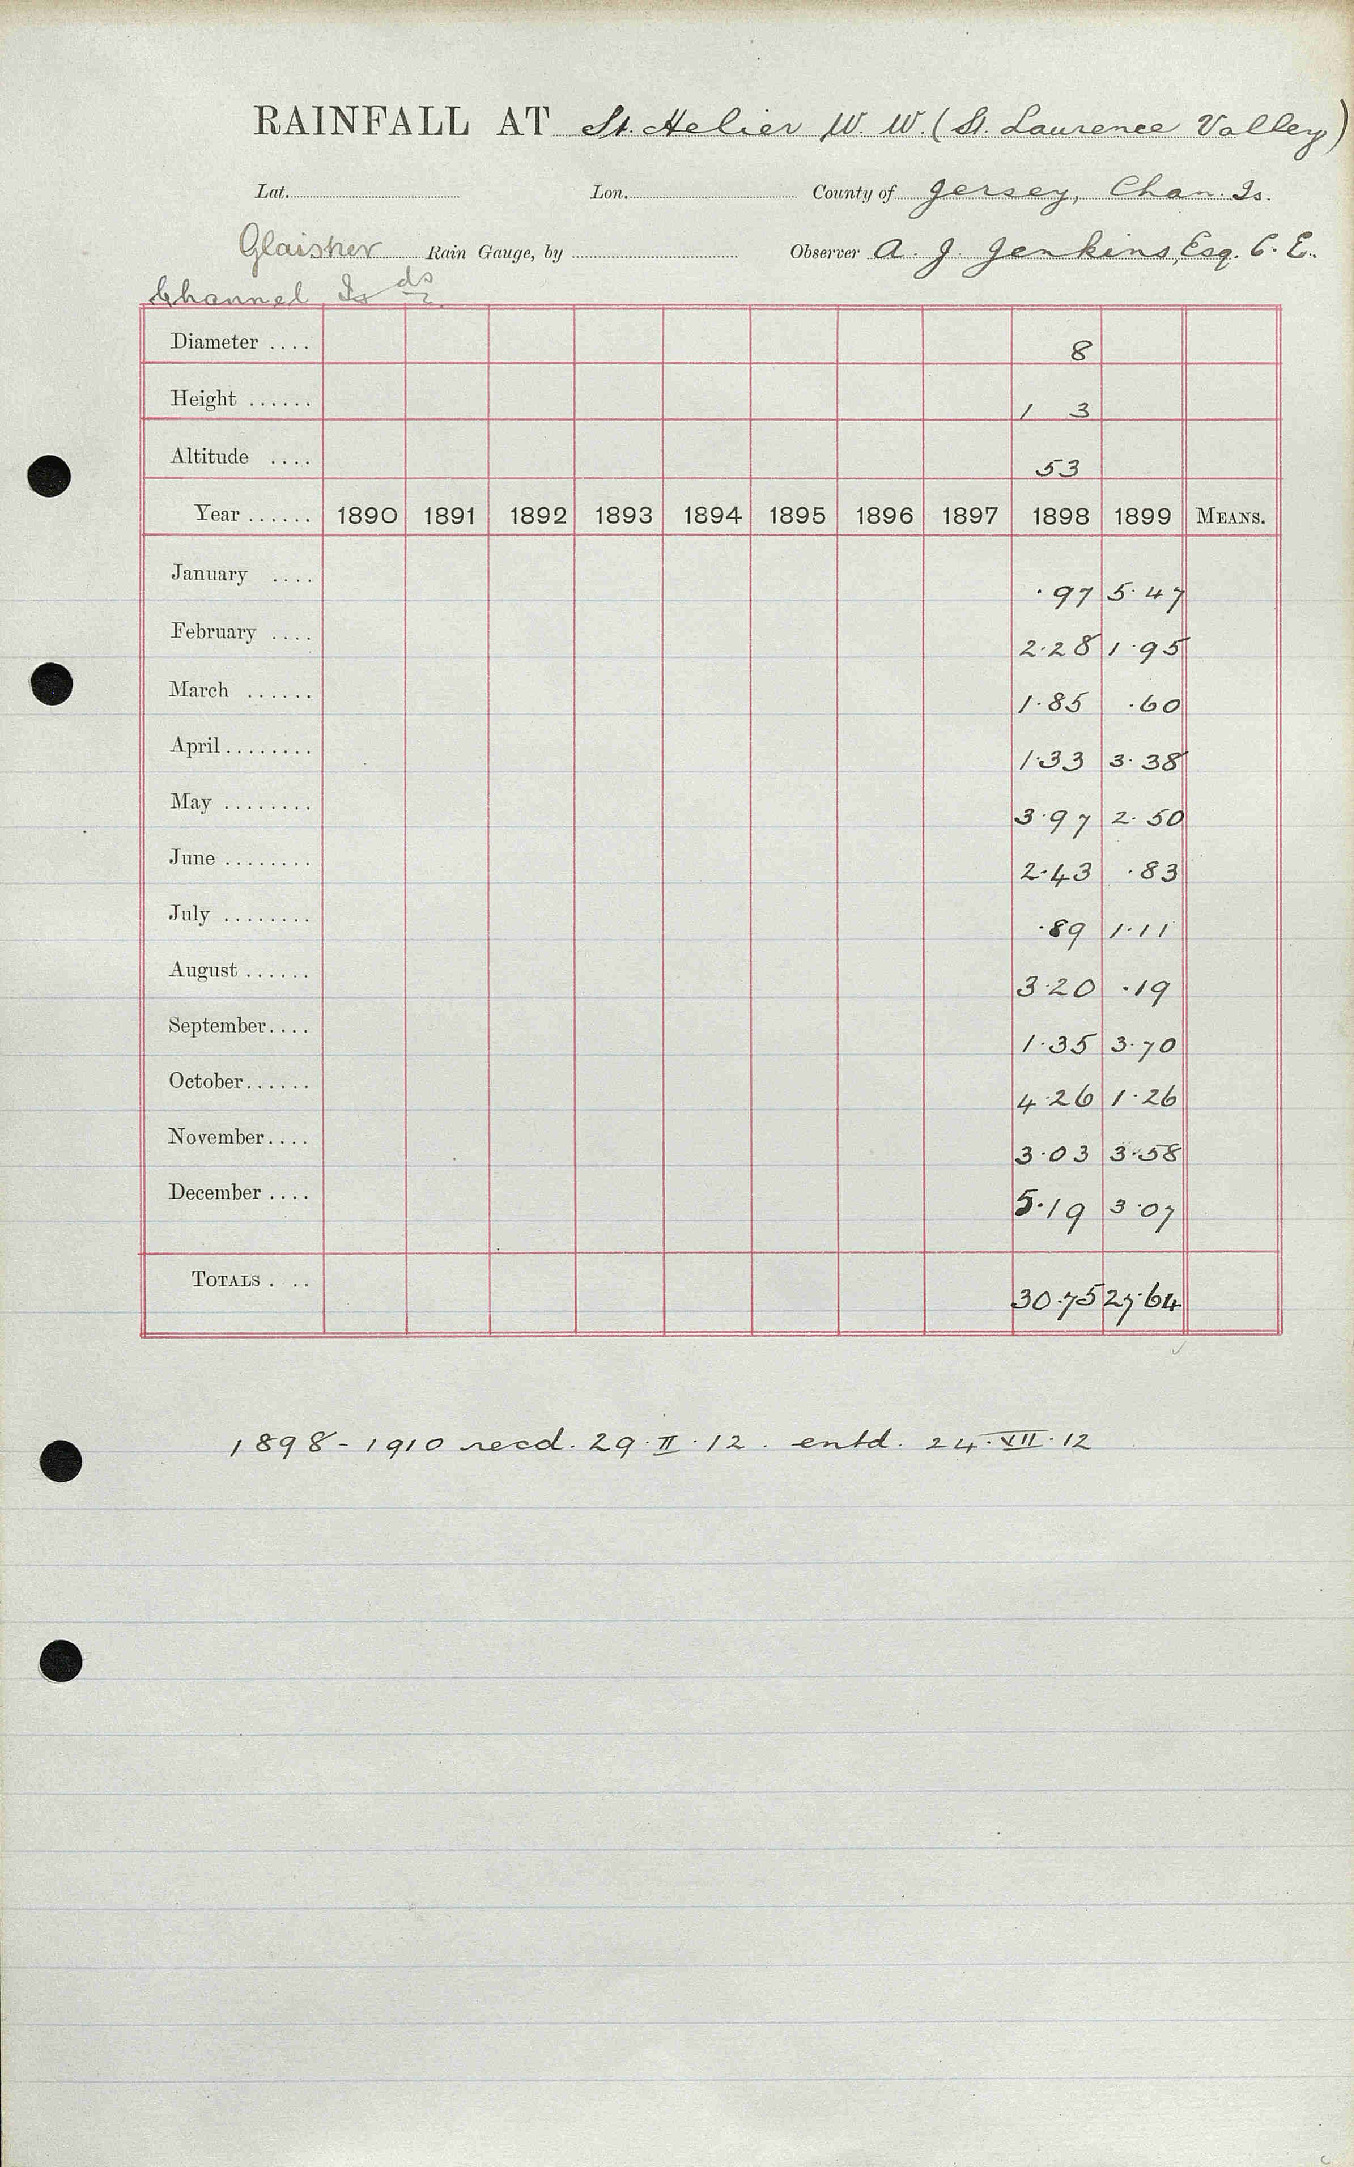 RAINFALL AT St. Helier W. W. (St. Laurence Valley)
Lat. Lon. County of Jersey, Chan. Is.
Glaisher Rain Gauge, by Observer A. J. Jenkins, Esq. C. E.
Channel Is ds
Diameter .... 8
Height ...... 1 3
Altitude .... 53
Year ...... 1890 1891 1892 1893 1894 1895 1896 1897 1898 1899 MEANS.
January .... .97 5.47
February .... 2.28 1.95
March ...... 1.85 .60
April ........ 1.33 3.38
May ........ 3.97 2.50
June ........ 2.43 .83
July ........ .89 1.11
August ...... 3.20 .19
September.... 1.35 3.70
October...... 4.26 1.26
November.... 3.03 3.58
December .... 5.19 3.07
TOTALS . .. 30.75 27.64
1898-1910 recd. 29.II.12. entd. 24.VII.12